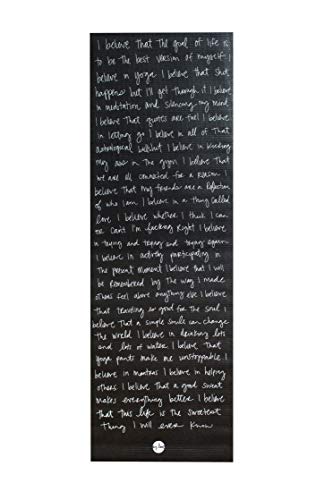 I believe that the goal of life is
to be the best version of myself
believe in yoga I believe that shit
happens but I'll get through it I believe
in meditation and silencing my mind
I believe that quotes are fuel I believe
in letting go I believe in all of that
astrological bullshit I believe in kicking
my ass in the gym I believe that
we are all connected for a reason I
believe that my friends are a reflection
of who I am I believe in a thing called
love I believe whether I think I can
or can't I'm fucking right I believe
in trying and trying and trying again
I believe in actively participating in
the present moment I believe that I will
be remembered by the way I made
others feel above anything else I believe
that traveling is good for the soul I
believe that a simple smile can change
the world I believe in drinking lots
and lots of water I believe that
yoga pants make me unstoppable I
believe in mantras I believe in helping
others I believe that a good sweat
makes everything better I believe
that this life is the sweetest
thing I will ever know